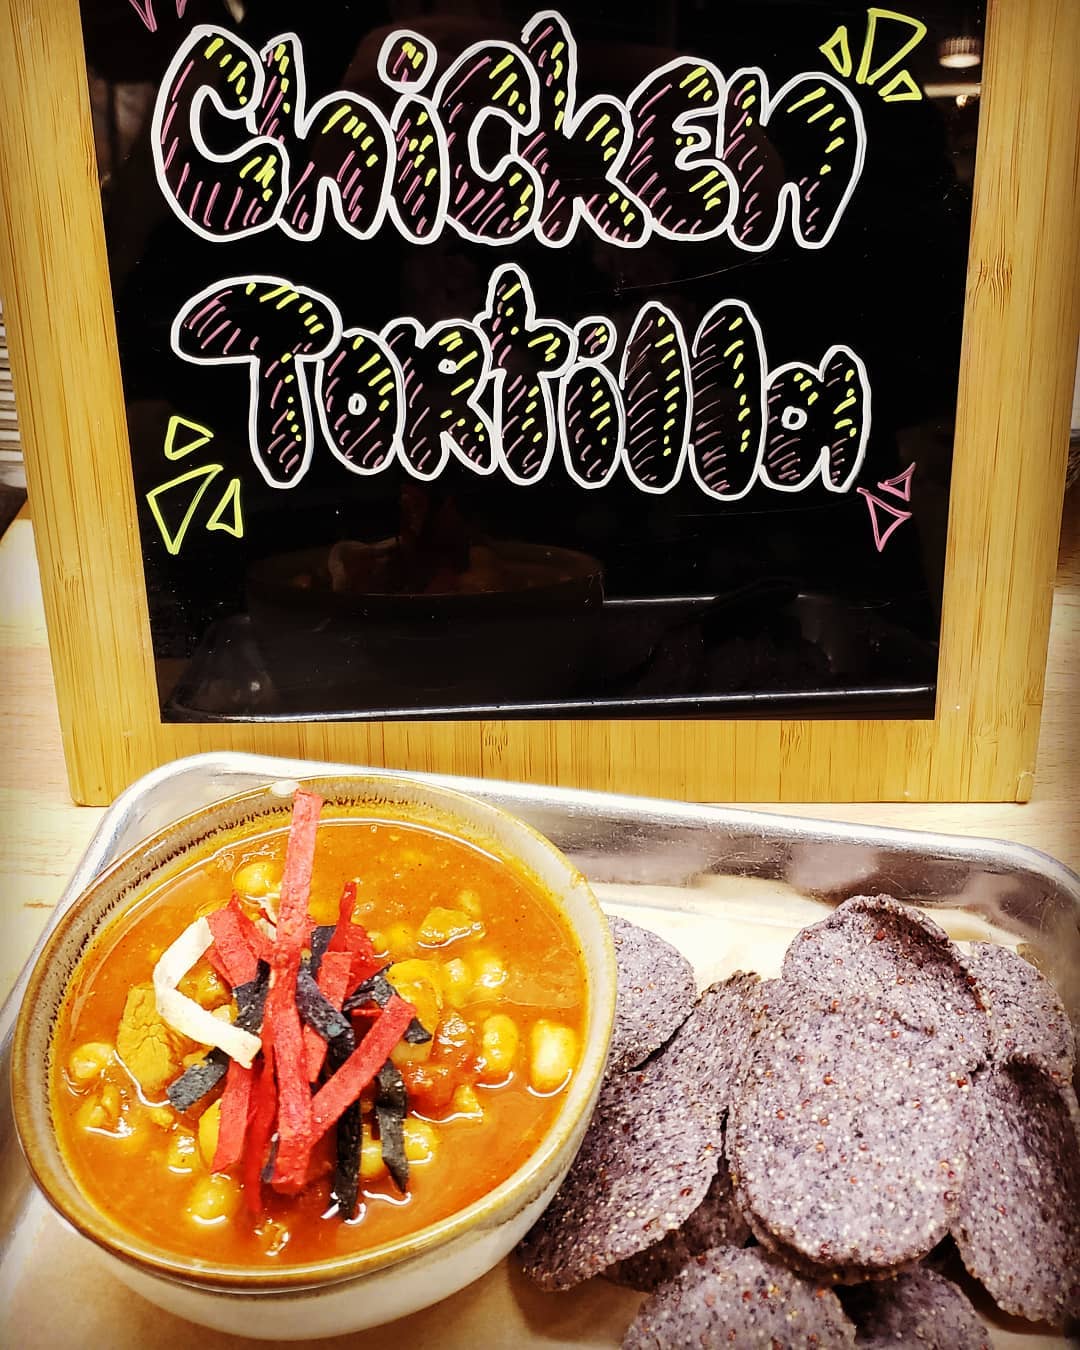 Chicken
Tortilla